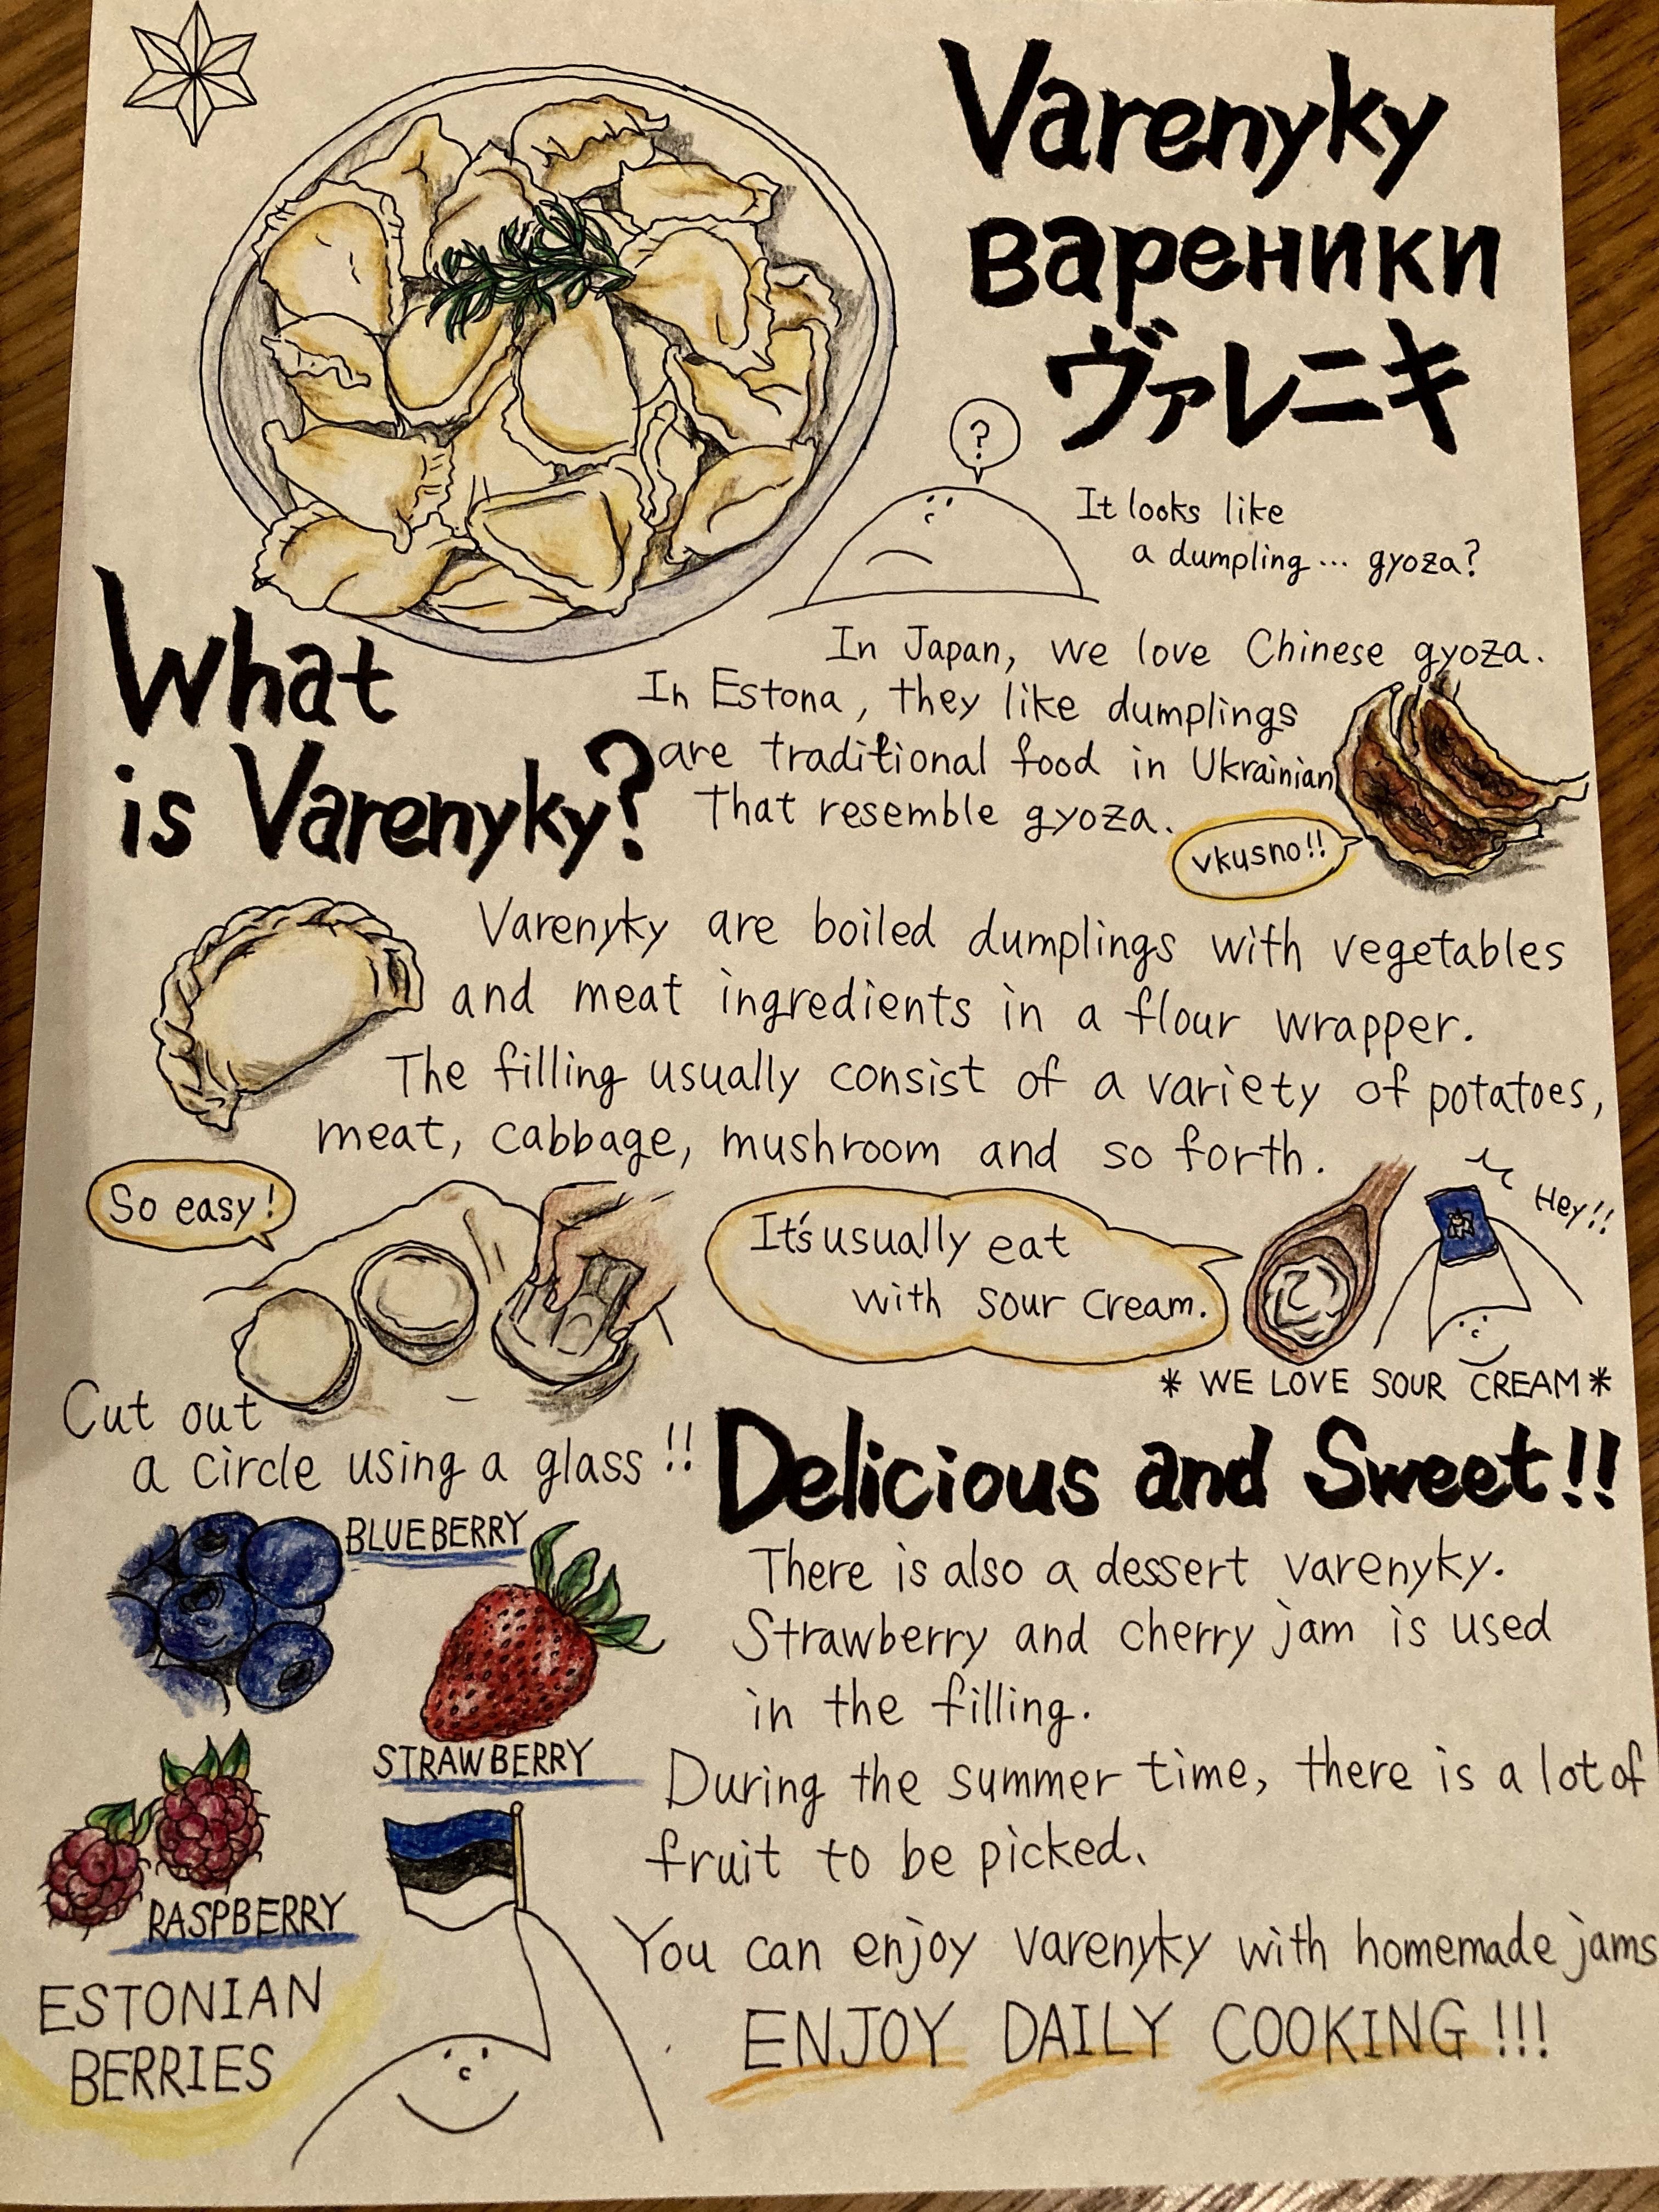 Varenyky
вареники
ヴァレニキ
?
It looks like
a dumpling... gyoza?
What
is Varenyky?
In Japan, we love Chinese gyoza.
In Estona, they like dumplings
are traditional food in Ukrainian
That resemble gyoza.
vkusno!!
Varenyky are boiled dumplings with vegetables
and meat ingredients in a flour wrapper.
The filling usually consist of a variety of potatoes,
meat, cabbage, mushroom and so forth.
So easy!
It's usually eat
with sour cream.
Hey!!
* WE LOVE SOUR CREAM *
Cut out
a circle using a glass!!
Delicious and Sweet!!
BLUEBERRY
STRAWBERRY
RASPBERRY
ESTONIAN
BERRIES
There is also a dessert varenyky.
Strawberry and cherry jam is used
in the filling.
During the summer time, there is a lot of
fruit to be picked.
You can enjoy varenyky with homemade jams
ENJOY DAILY COOKING!!!